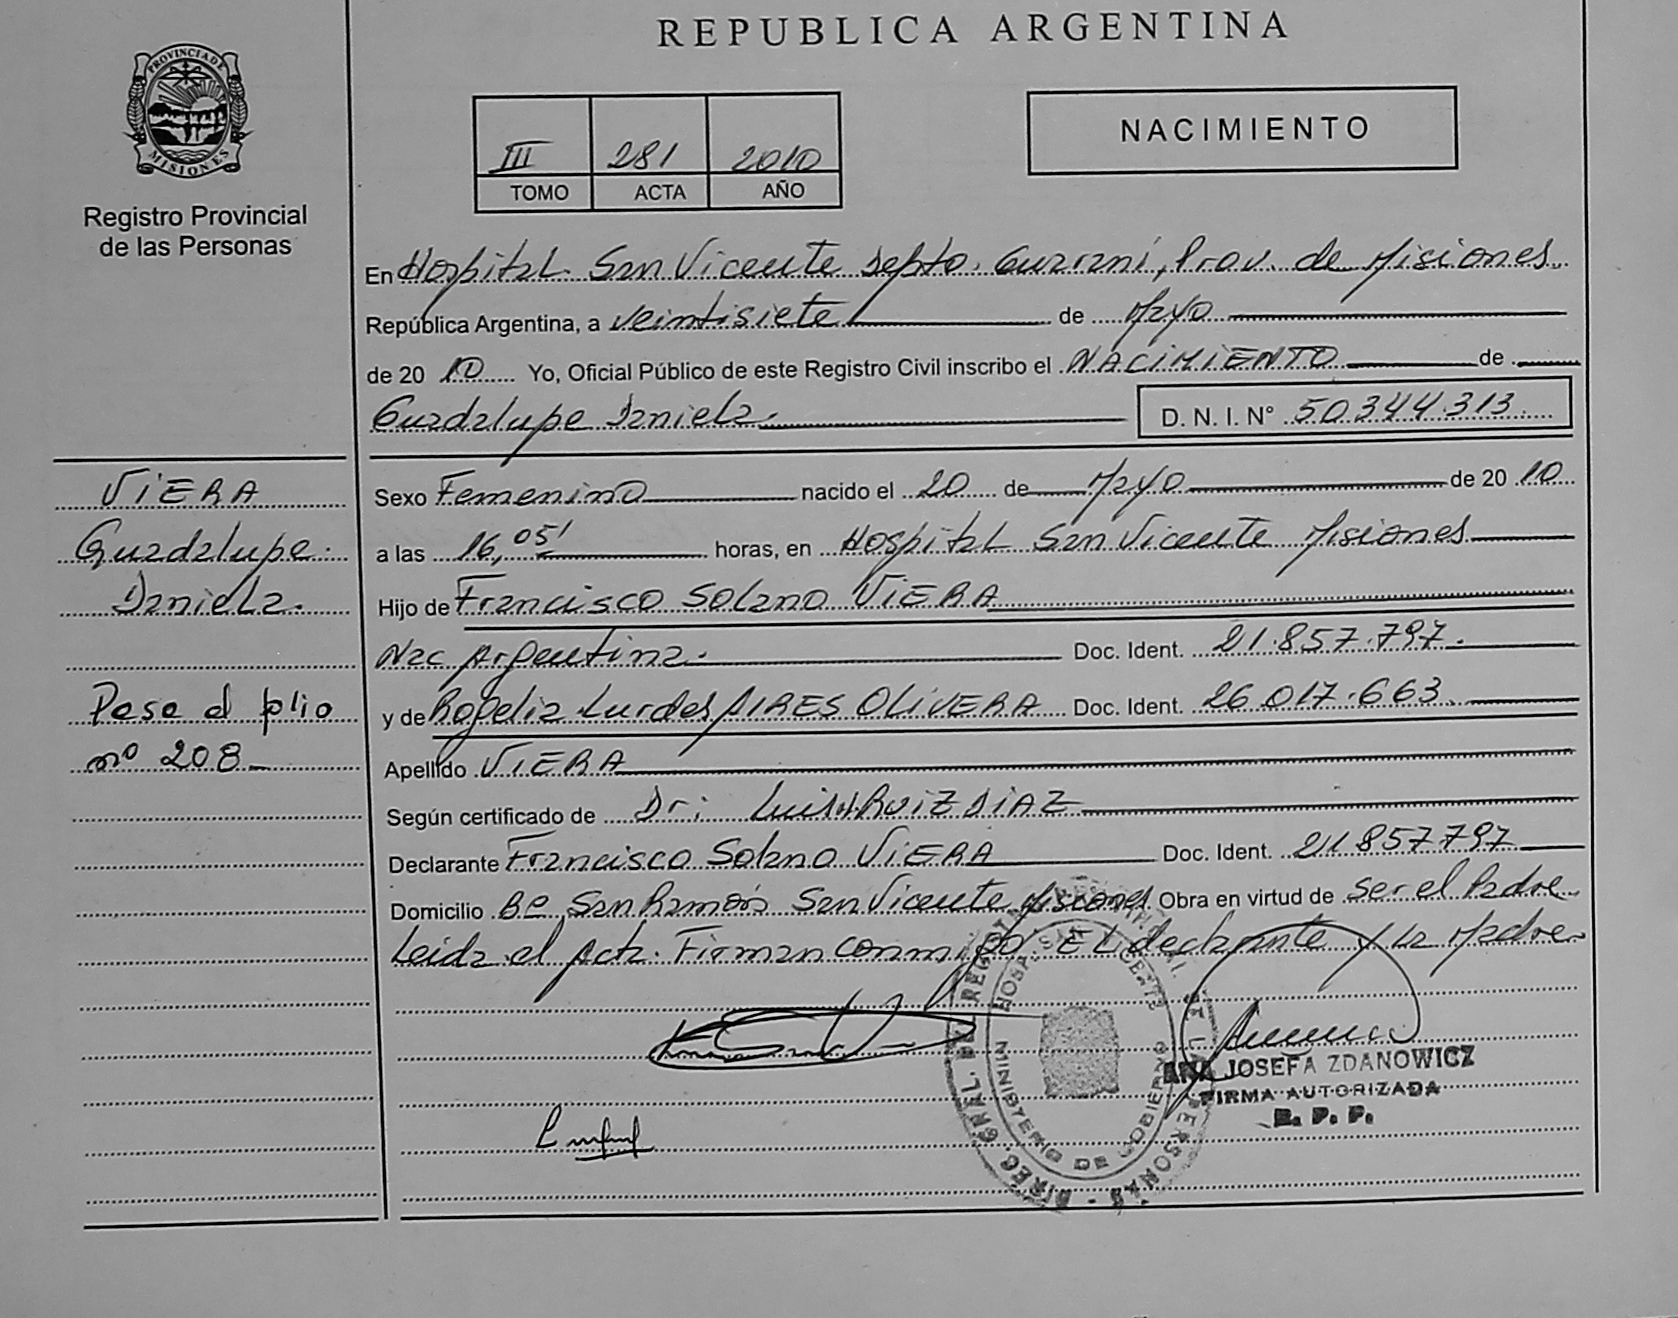 REPUBLICA ARGENTINA
PROVINCIA DE MISIONES
Registro Provincial
de las Personas
III 281 2010
TOMO ACTA AÑO
NACIMIENTO
En Hospital San Vicente Depto. Guaraní, Prov. de Misiones
República Argentina, a veintisiete de Mayo
de 20 10 Yo, Oficial Público de este Registro Civil inscribo el NACIMIENTO de
Guadalupe Daniela.
D. N. I. N° 50344313
VIERA
Guadalupe
Daniela.
Pase al folio
nº 208
Sexo Femenino nacido el 20 de Mayo de 20 10
a las 16,05' horas, en Hospital San Vicente Misiones
Hijo de Francisco Solano VIERA
Nac Argentina. Doc. Ident. 21.857.797.
y de Rogelia Lurdes PIRES OLIVERA Doc. Ident. 26.017.663
Apellido VIERA
Según certificado de Dr: Luis H. RUIZ DIAZ
Declarante Francisco Solano VIERA Doc. Ident. 21.857797
Domicilio Bº San Ramón San Vicente Misiones Obra en virtud de ser el Padre
Leida el Acta. Firman conmigo El declarante y la Madre
DIREC. GRAL. DEL REGISTRO PROVINCIAL DE LAS PERSONAS
HOSP. SAN VICENTE
MINISTERIO DE GOBIERNO
ANA JOSEFA ZDANOWICZ
FIRMA AUTORIZADA
R. P. P.